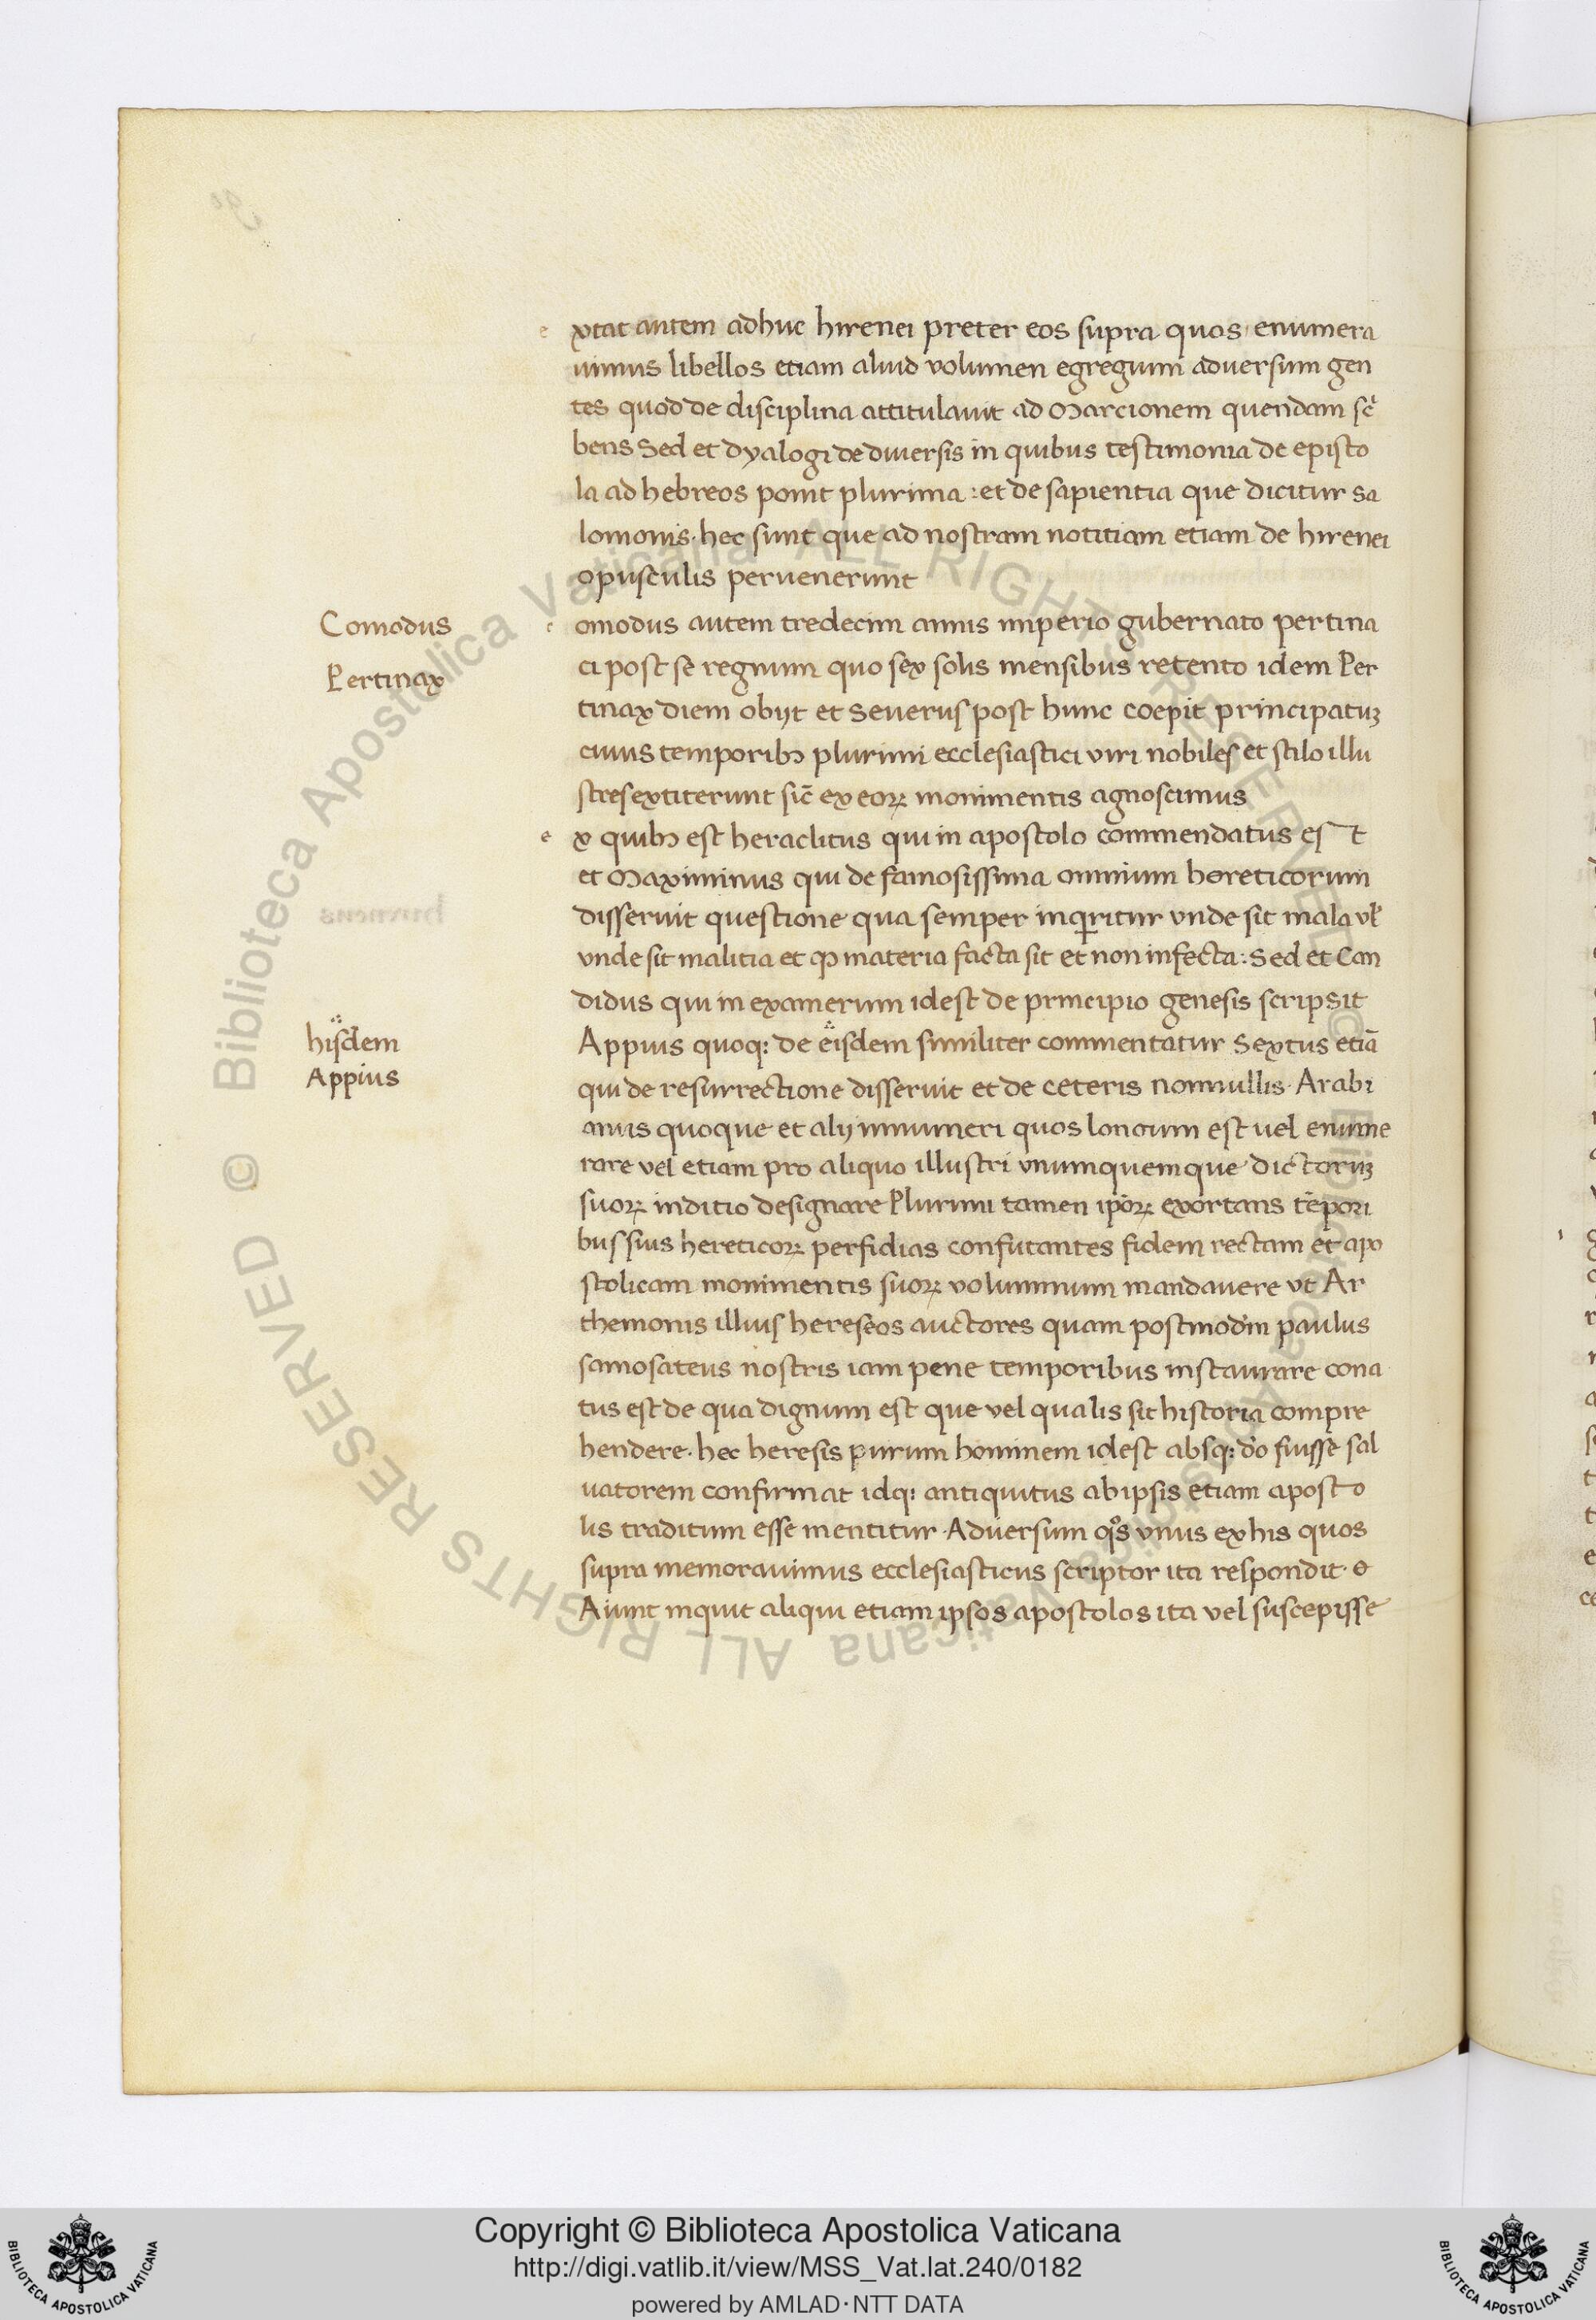 extat autem adhuc hirenei preter eos supra quos enumera
uimus libellos etiam aliud volumen egregium aduersum gen
tes quod de disciplina attitulauit ad Marcionem quendam sc̄
bens Sed et dyalogi de diuersis in quibus testimonia de episto
la ad hebreos ponit plurima : et de sapientia que dicitur sa
lomonis· hec sunt que ad nostram notitiam etiam de hirenei
opusculis peruenerunt
Comodus
comodus autem tredecim annis imperio gubernato pertina
Pertinax
ci post se regnum quo sex solis mensibus retento idem Per
tinax diem obijt et Seuerus post hunc coepit principatuꝫ
cuius temporibꝫ plurimi ecclesiastici viri nobiles et stilo illu
stres extiterunt sic̄ ex eoꝝ monimentis agnoscimus
ex quibꝫ est heraclitus qui in apostolo commendatus est
et Maximinus qui de famosissima omnium hereticorum
disseruit questione qua semper inqͥritur vnde sit mala vl̓
vnde sit malitia et ꝙ materia facta sit et non infecta : Sed et Can
didus qui in examerum idest de principio genesis scripsit
hisdem
Appius quoqꝫ de eisdem similiter commentatur Sextus etiā
Appius
qui de resurrectione disseruit et de ceteris nonnullis· Arabi
anus quoque et alij innumeri quos loncum est uel enume
rare vel etiam pro aliquo illustri vnumquemque dictoruꝫ
suoꝝ inditio designare Plurimi tamen ip̄oꝝ exortans tēpori
bus suis hereticoꝝ perfidias confutantes fidem rectam et apo
stolicam monimentis suoꝝ voluminum mandauere vt Ar
themonis illius hereseos auctores quam postmod̓m paulus
samosateus nostris iam pene temporibus instaurare cona
tus est de qua dignum est que vel qualis sit historia compre
hendere· hec heresis purum hominem idest absqꝫ d̓o fuisse sal
uatorem confirmat idqꝫ antiquitus ab ipsis etiam aposto
lis traditum esse mentitur· Aduersum qͦs vnus ex his quos
supra memorauimus ecclesiasticus scriptor ita respondit·
Aiunt inquit aliqui etiam ipsos apostolos ita vel suscepisse
Copyright © Biblioteca Apostolica Vaticana
http://digi.vatlib.it/view/MSS_Vat.lat.240/0182
powered by AMLAD·NTT DATA
BIBLIOTECA APOSTOLICA VATICANA
BIBLIOTECA APOSTOLICA VATICANA
© Biblioteca Apostolica Vaticana ALL RIGHTS RESERVED
© Biblioteca Apostolica Vaticana ALL RIGHTS RESERVED